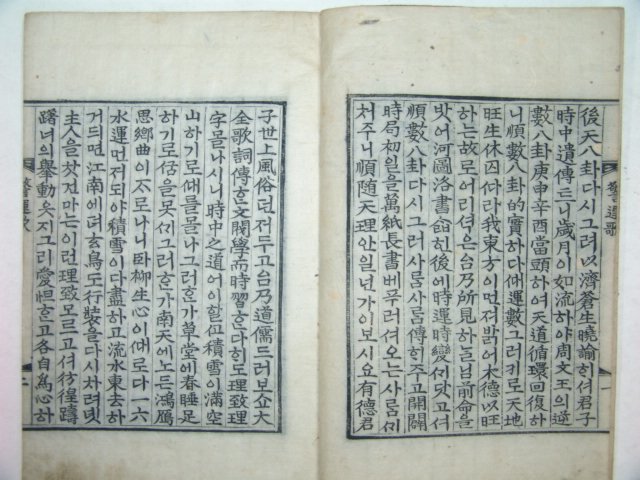 後天八卦다시그려以濟蒼生曉諭히셔君子
時中遺傳드니歲月이如流하야周文王의逆
數八卦庚申辛酉當頭하여天道循環回復하
니順數八卦的實하다運數그러키로天地
旺生休囚따라我東方이먼져밝어木德以旺
하는故로어리셕은台乃所見하늘님前命을
밧어河圖洛書合힌後에時運時變씨닷고셔
順數八卦다시그려사람사람傳히주고開闢
時局初일을萬紙長書베푸러셔오는사람씨
처주니順隨天理안일넌가이보시요有德君
一
子世上風俗던져두고台乃道儒드러보쇼大
全歌詞傳한文闕學而時習한다히도理致理
字몰나시니時中之道어이할고積雪이滿空
山하기로를몰나그러한가草堂에春睡足
하기로을못씨그러한가南天에노든鴻鴈
思鄕曲이로나니卧柳生心이로다一六
水運먼져되야積雪이다盡하고流水東去하
거듸면江南에玄鳥도行裝을다시차려녯
主人을찻건마는이런理致모르고셔彷徨躊
躇녀의擧動웃지그리愛恒한고各自爲心하
二